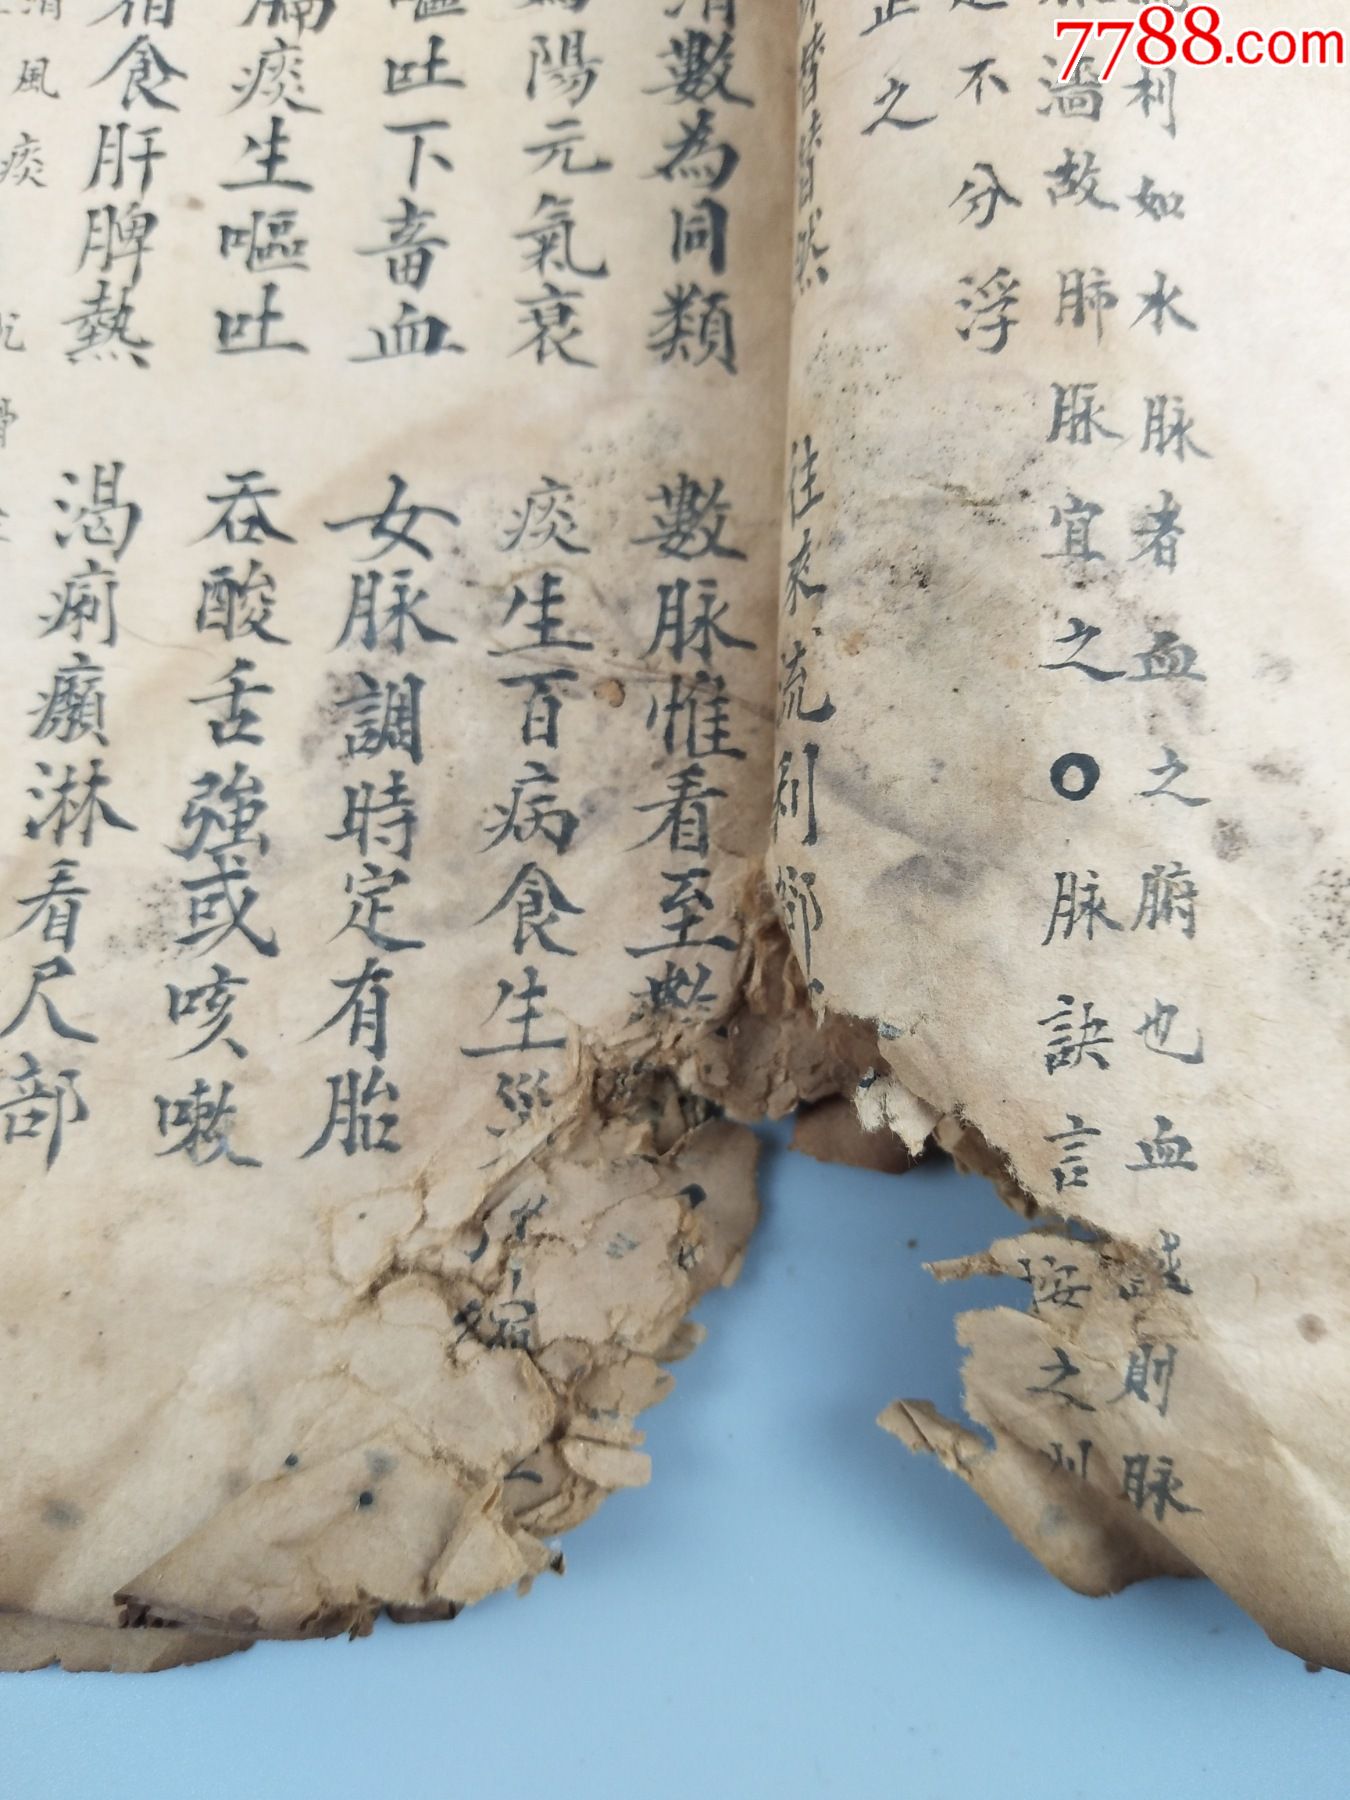 7788.com
利如水脉者血之腑也血 則脉
濇故肺脉宜之○脉訣言 按之則
不分浮
正之
替替然 往來流利卻
數為同類 數脉惟看至數
陽元氣衰 痰生百病食生災
嘔吐下畜血 女脉調時定有胎
痰生嘔吐 吞酸舌強或咳嗽
宿食肝脾熱 渴痢癩淋看尺部
風痰